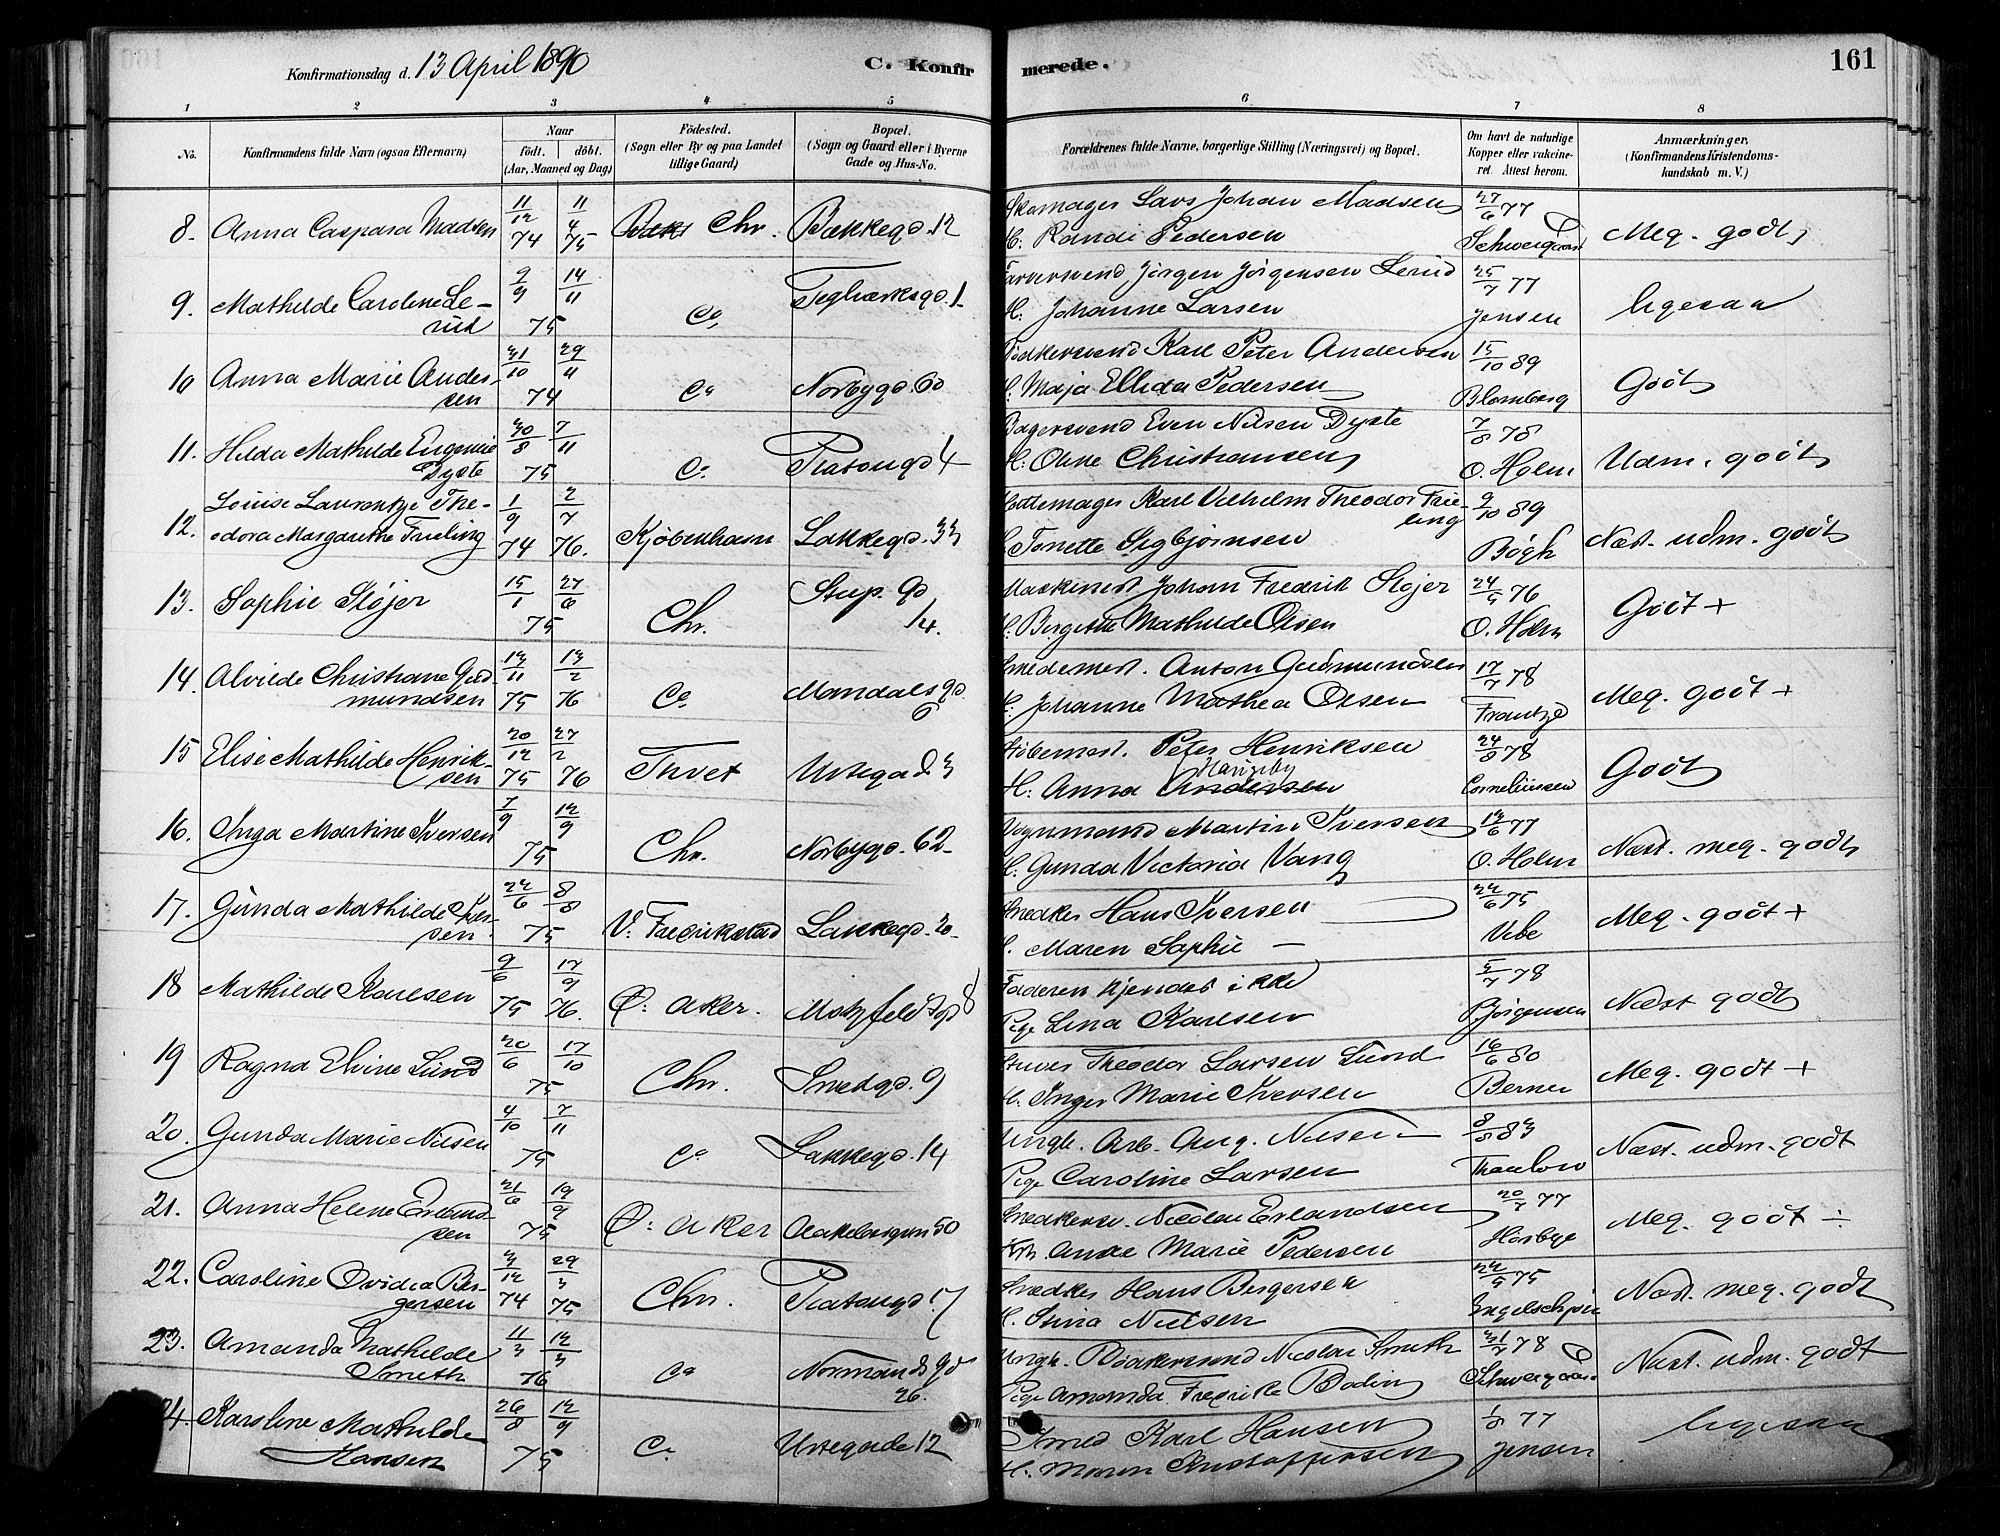 Konfirmationsdag d. 13 April 1890 C. Konfirmerede. 161
1 2 3 4 5 6 7 8
No. Konfirmandens fulde Navn (ogsaa Efternavn) Naar födt. döbt. (Aar, Maaned og Dag) Födested. (Sogn eller By og paa Landet tillige Gaard) Bopæl. (Sogn og Gaard eller i Byerne Gade og Hus-No. Forældrenes fulde Navne, borgerlige Stilling (Næringsvei) og Bopæl. Om havt de naturlige Kopper eller vakcineret. Attest herom. Anmærkninger. (Konfirmandens Kristendomskundskab m. V.)
8. Anna Caspara Madsen 11/12 74 11/4 75 Chr. Bakkegd. 12 Skomager Lars Johan Madsen 27/6 77 Meg. godt
H: Randi Pedersen Schweigaard
9. Mathilde Caroline Lerud 9/9 14/11 75 Co Teglværksgd. 1 Farversvend Jörgen Jörgensen Lerud 25/7 77 ligesaa
H: Johanne Larsen Jensen
10 Anna Marie Andersen 31/10 29/11 74 Co Norbygd. 60 Bödkersvend Karl Peter Andersen 15/10 89 Godt
H. Maja Ellida Pedersen Blomberg
11. Hilda Mathilde Eugenie Dyste 30/8 7/11 75 Co Platougd 4 Bagersvend Even Nilsen Dyste 7/8 78 Udm. godt
H: Oline Christiansen O. Holm
12. Louise Laurentze Theodora Margarethe Frieling 1/9 74 2/7 76. Kjöbenhavn Lakkegd. 33 Hattemager Karl Vilhelm Theodor Frieling 9/10 89 Næst. udm. godt
Tonette Sigbjörnsen Bögh
13. Sophie Slöjer 15/1 27/6 75 Chr. Stup. gd 14. Maskinest Johan Fredrik Slöjer 24/5 76 Godt +
H. Birgitte Mathilde Olsen O. Holm
14. Alvilde Christiane Gudmundsen 13/11 75 13/2 76 Co Mandals gd 6 Smedemest. Anton Gudmundsen 17/7 78 Meg. godt +
H: Johanne Mathea Olsen Frantze
15 Elise Mathilde Henriksen 20/12 75 27/2 76 Tvet Urtegad. 3 Støbemest. Peter Henriksen 24/8 78 Godt
H: Anna Andersen Corneliussen
16. Inga Martine Iversen 7/9 12/9 75 Chr. Norbygd. 62 Vognmand Martin Iversen 13/6 77 Næst. meg. godt
H. Gunda Victoria Vang O. Holm
17. Gunda Mathilde Iversen 22/6 8/8 75 V. Fredrikstad Lakkegd. 20 Snedker Hans Iversen 22/6 75 Meg. godt +
H. Maren Sophie — Vibe
18 Mathilde Karlsen 9/6 75 17/9 76. Ö: Aker. Motzfeldtsgd 8 Faderen kjendes ikke 5/7 78 Næst godt
Pige Lina Karlsen Bjørgensen
19 Ragna Elvine Lund 20/6 17/10 75 Chr. Smedgd. 9 Stuver Theodor Larsen Lund 16/6 80 Meg. godt +
H. Inger Marie Iversen Berner
20. Gunda Marie Nilsen 4/10 7/11 75 Co Lakkegd. 14 Ungk. Arb. Aug. Nilsen 8/8 83 Næst. udm. godt
Pige Caroline Larsen Thaulow
21. Anna Helene Erlandsen 21/6 19/9 75 Ö: Aker Aakebergvn 50 Snedkersv. Nicolai Erlandsen 20/7 77 Meg. godt ÷
Anne Marie Pedersen Horbye
22. Caroline Ovidia Bergersen 3/12 74 29/3 75 Chr. Platougd 17 Snedker Hans Bergersen 22/5 75 Næst. meg. godt
H. Stina Nielsen Engelschjøn
23. Amanda Mathilde Smeth 11/3 12/3 76 Co Normandsgd 26. Ungk. Bödkersvend Nicolai Smeth 31/7 78 Næst. udm. godt
Pige Amanda Fredrike Bodin Schweigaard
24. Karoline Mathilde Hansen 26/8 12/9 75 Co Urtegade 12 Smed Karl Hansen 1/8 77 ligesaa
H. Maren Kristoffersen Jensen